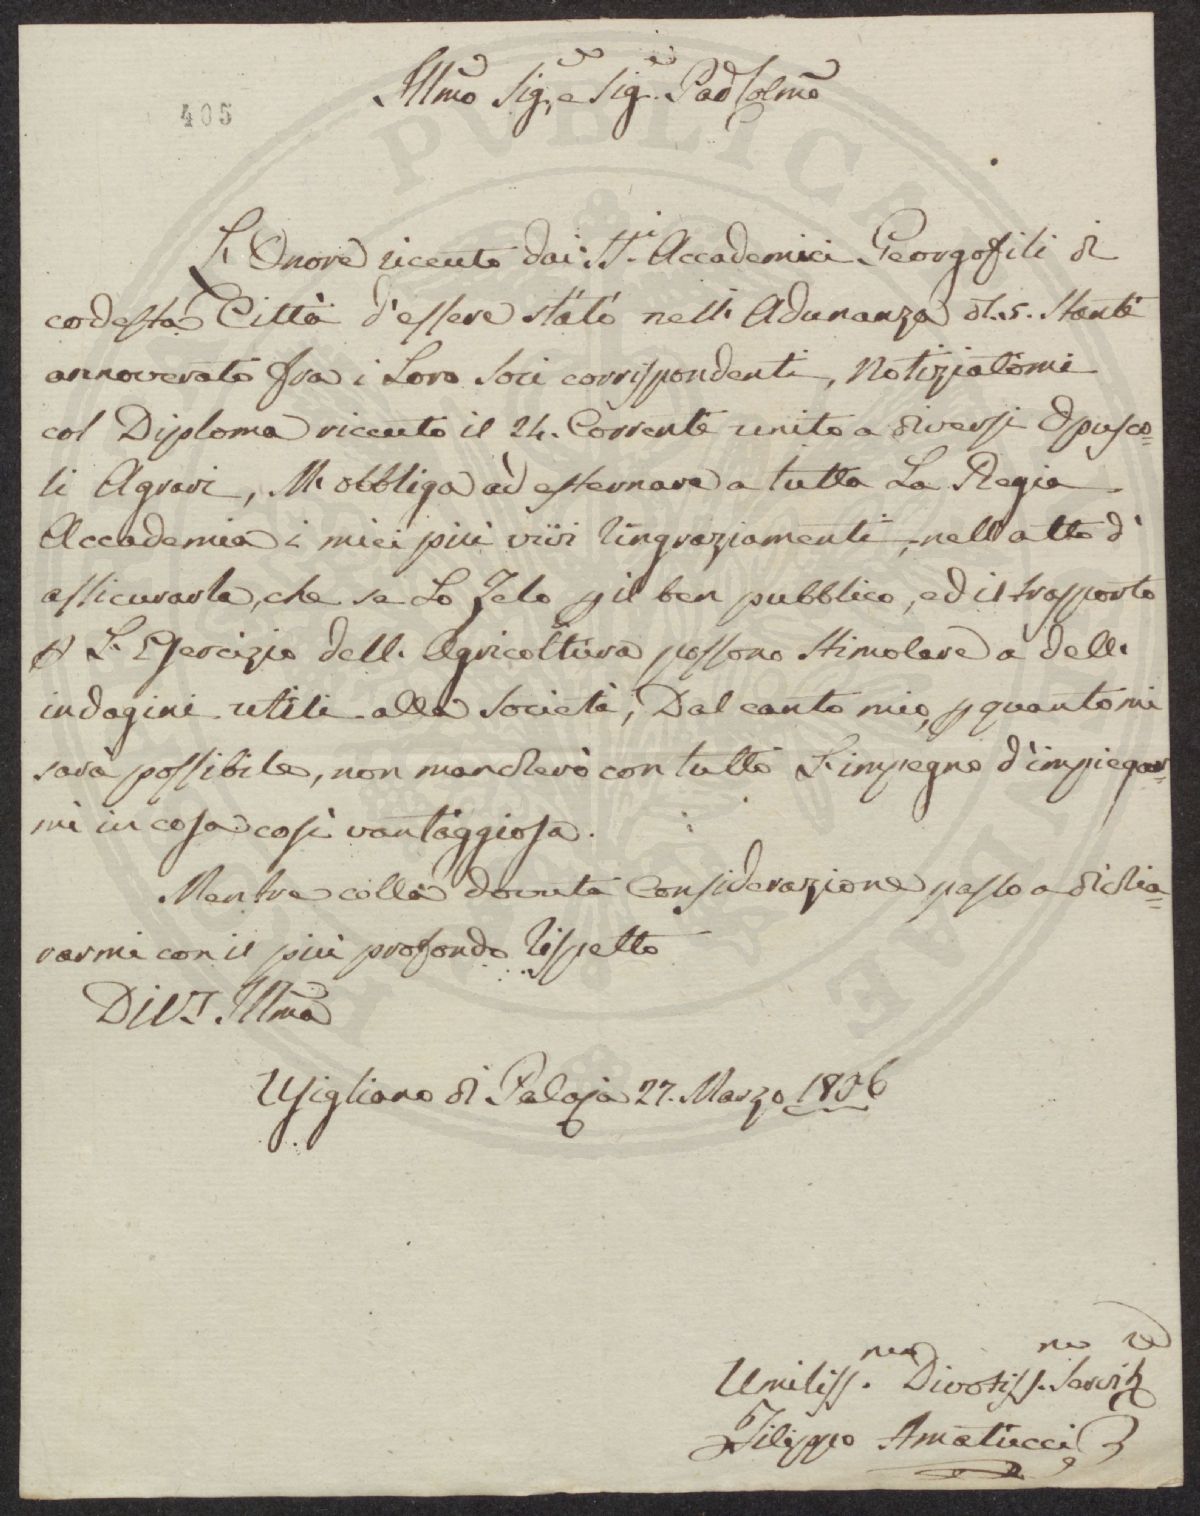 405
Illmo Sig.e e Sig.e Pad. Colmo
L'Onore riceuto dai SS.i Accademici Georgofili di
codesta Città d'essere stato nell'Adunanza de' 5. Stante
annoverato fra i Loro Soci corrispondenti, Notiziatomi
col Diploma riceuto il 24. Corrente unito a diversi Opusco=
li Agrari, M'obbliga ad esternare a tutta La Regia
Accademia i miei più vivi Ringraziamenti, nell'atto d'
assicurarla, che se Lo Zelo p il ben pubblico, ed il trasporto
p L'Esercizio dell'Agricoltura possono stimolare a delle
indagini utili alla Società, Dal canto mio, p quanto mi
sarà possibile, non mancherò con tutto L'impegno d'impiegar=
mi in cosa così vantaggiosa.
Mentre colla dovuta Considerazione passo a dichia=
rarmi con il più profondo Rispetto
Di V.S. Illma
Usigliano di Palaja 27. Marzo 1806
Umiliss.mo Divotiss.mo Servit.re
Filippo Amatucci
PVBLICA